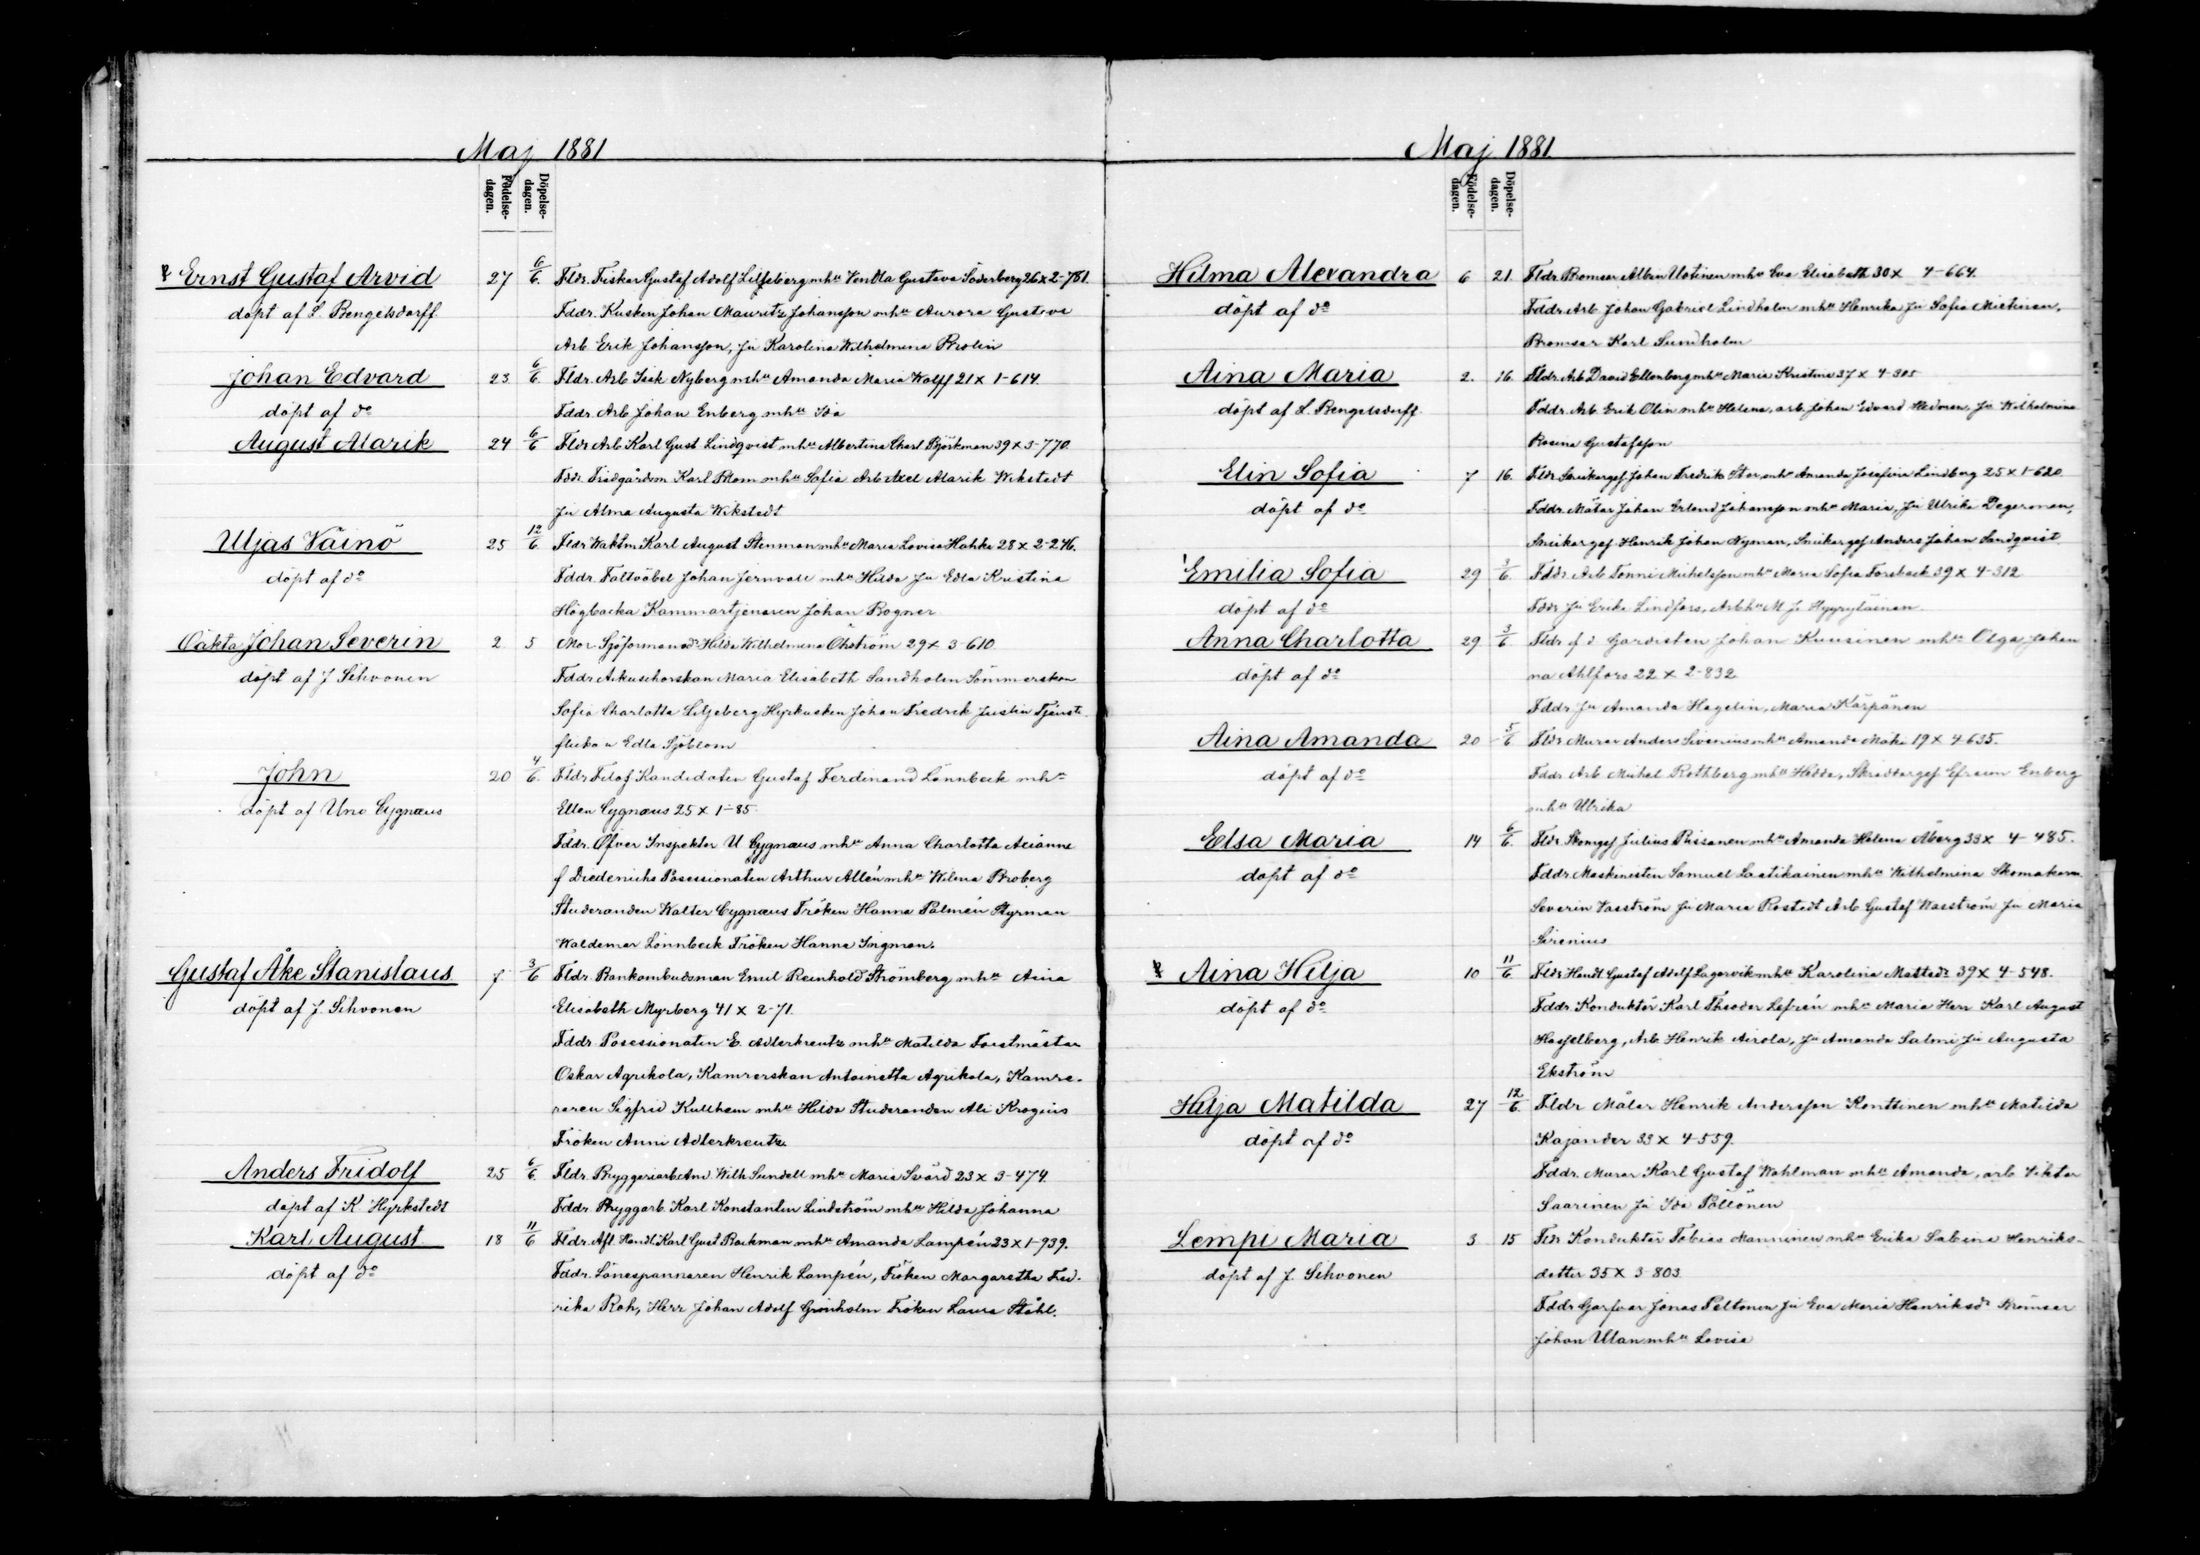 Maj 1881
Födelse-dagen.
Döpelse-dagen.
Ernst Gustaf Arvid 27 6/6. Fldr. Fiskar Gustaf Adolf Liljeberg mhu Vendla Gustava Söderberg 26 x 2-781.
döpt af L. Bengelsdorff Fddr. Kusken Johan Mauritz Johansson mhu Aurora Gustava
Arb Erik Johansson, Ju Karolina Wilhelmina Brolin
Johan Edvard 23 6/6. Fldr. Arb Isak Nyberg mhu Amanda Maria Wolff 21 x 1-614.
döpt af do Fddr. Arb Johan Enberg mhu Ida
August Alarik 24 6/6 Fldr Arb Karl Gust Lindqvist mhu Albertina Charl Björkman 39 x 3-770.
Fddr Trädgårdsm Karl Blom mhu Sofia Arb Axel Alarik Wikstedt
Ju Alma Augusta Wikstedt
Uljas Väinö 25 12/6. Fldr Waktm Karl August Stenman mhu Maria Lovisa Hahka 28 x 2-276.
döpt af do Fddr. Faltväbel Johan Jernvall mhu Hilda Ju Edla Kristina
Högbacka Kammartjenaren Johan Bogner
Oäkta Johan Severin 2 5 Mor Sjöformansdr Hilda Wilhelmina Öhström 29 x 3-610.
döpt af J Sihvonen Fddr Arkuschorskan Maria Elisabeth Sandholm Sömmerskan
Sofia Charlotta Liljeberg Hyrkusken Johan Fredrik Justin Tjenste
flickan Edla Sjöblom
John 20 4/6. Fldr Filos Kandidaten Gustaf Ferdinand Lönnbeck mhu
döpt af Uno Cygnæus Ellen Cygnæus 25 x 1-85.
Fddr. Öfver Inspektor U Cygnæus mhu Anna Charlotta Axianne
f Diederichs Possessionaten Arthur Allén mhu Wilma Broberg
Studeranden Walter Cygnæus Fröken Hanna Palmén Styrman
Waldemar Lönnbeck Fröken Hanna Ingman.
Gustaf Åke Stanislaus 7 3/6 Fldr. Bankombudsman Emil Reinhold Strömberg mhu Aina
döpt af J. Sihvonen Elisabeth Myrberg 41 x 2-71.
Fddr. Possessionaten E. Adlerkreutz mhu Matilda Forstmästar
Oskar Agrikola, Kamrerskan Antoinetta Agrikola, Kamre-
raren Sigfrid Kullhem mhu Hilda Studeranden Ali Krogius
Fröken Anni Adlerkreutz.
Anders Fridolf 25 6/6. Fldr. Bryggeriarb And Wilh Sundell mhu Maria Svärd 23 x 3-474.
döpt af K Hyrkstedt Fddr. Bryggarb. Karl Konstantin Lindström mhu Hilda Johanna
Karl August 18 11/6 Fldr. Afl Handl. Karl Gust Backman mhu Amanda Lampén 23 x 1-939.
döpt af do Fddr. Sönespannaren Henrik Lampén, Fröken Margaretha Fred-
rika Roh, Herr Johan Adolf Grönholm Fröken Laura Ståhl.
Maj 1881.
Födelse-dagen.
Döpelse-dagen.
Hilma Alexandra 6 21. Fldr. Bromsar Albin Uotinen mhu Eva Elisabeth 30 x 4-664.
döpt af do Fddr. Arb Johan Gabriel Lindholm mhu Henrika Ju Sofia Miettinen,
Bromsar Karl Sundholm
Aina Maria 2. 16. Fldr. Arb David Ellenberg mhu Maria Kristina 37 x 4-305
döpt af L. Bengelsdorff. Fddr. Arb. Erik Olin mhu Helena, arb. Johan Edvard Hedman, Ju Wilhelmina
Rosina Gustafsson
Elin Sofia 7 16. Fldr. Snickargef Johan Fredrik Ster mhu Amanda Josefina Lindberg 25 x 1-620
döpt af do Fddr. Målar Johan Erlend Johansson mhu Maria, Ju Ulrika Degerman,
Snickargef Henrik Johan Nyman, Snickargef Anders Johan Sandqvist.
Emilia Sofia 29 3/6. Fddr. Arb Tonni Michelsson mhu Maria Sofia Forsback 39 x 4-312
döpt af do Fddr Ju Erika Lindfors, Arbhu M J Hyyryläinen.
Anna Charlotta 29 3/6. Fldr f d Gardisten Johan Kuusinen mhu Olga Johan
döpt af do na Ahlfors 22 x 2-832.
Fddr Ju Amanda Hagelin, Maria Kärpänen
Aina Amanda 20 5/6 Fldr Murar Anders Sivenius mhu Amanda Mäki 19 x 4-635.
döpt af do Fddr. Arb Mickel Rothberg mhu Hedda, Skräddargef Efraim Enberg
mhu Ulrika
Elsa Maria 14 6/6. Fldr. Skomgef Julius Pussanen mhu Amanda Helena Åberg 33 x 4-485.
döpt af do Fddr. Maskinisten Samuel Laatikainen mhu Wilhelmina Skomakaren
Severin Vasström Ju Maria Rostedt Arb Gustaf Wasström Ju Maria
Sirenius
Aina Hilja 10 11/6 Fldr Handl Gustaf Adolf Lagervik mhu Karolina Matsdr 39 x 4-548.
döpt af do Fddr. Konduktör Karl Theodor Lefrén mhu Maria Herr Karl August
Hasselberg, Arb. Henrik Airola, Ju Amanda Salmi Ju Augusta
Ekström
Hilja Matilda 27 12/6. Fldr Målar Henrik Andersson Konttinen mhu Matilda
döpt af do Kajander 33 x 4-559.
Fddr. Murar Karl Gustaf Wahlman mhu Amanda, arb Viktor
Saarinen Ju Ida Pöllönen
Lempi Maria 3 15 Fldr Konduktör Tobias Manninen mhu Erika Sabina Henriks-
döpt af J. Sihvonen dotter 35 x 3-803
Fddr Garfvar Jonas Peltonen Ju Eva Maria Henriksdr Bromsar
Johan Ulan mhu Lovisa